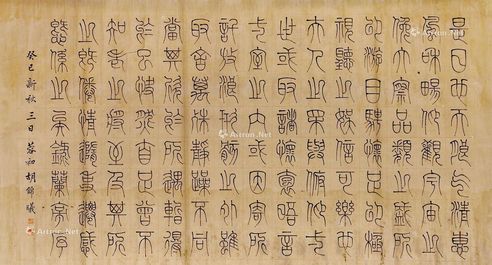 是日也天朗氣清惠
風和暢仰觀宇宙之
大俯察品類之盛所
以遊目騁懷足以極
視聽之娛信可樂也
夫人之相與俯仰一
世或取諸懷抱晤言
一室之內或因寄所
託放浪形骸之外雖
取舍萬殊靜躁不同
當其欣於所遇暫得
於己快然自足曾不
知老之將至及其所
之既倦情隨事遷感
慨係之矣錄蘭亭序
癸巳新秋三日蓉初胡錦曦